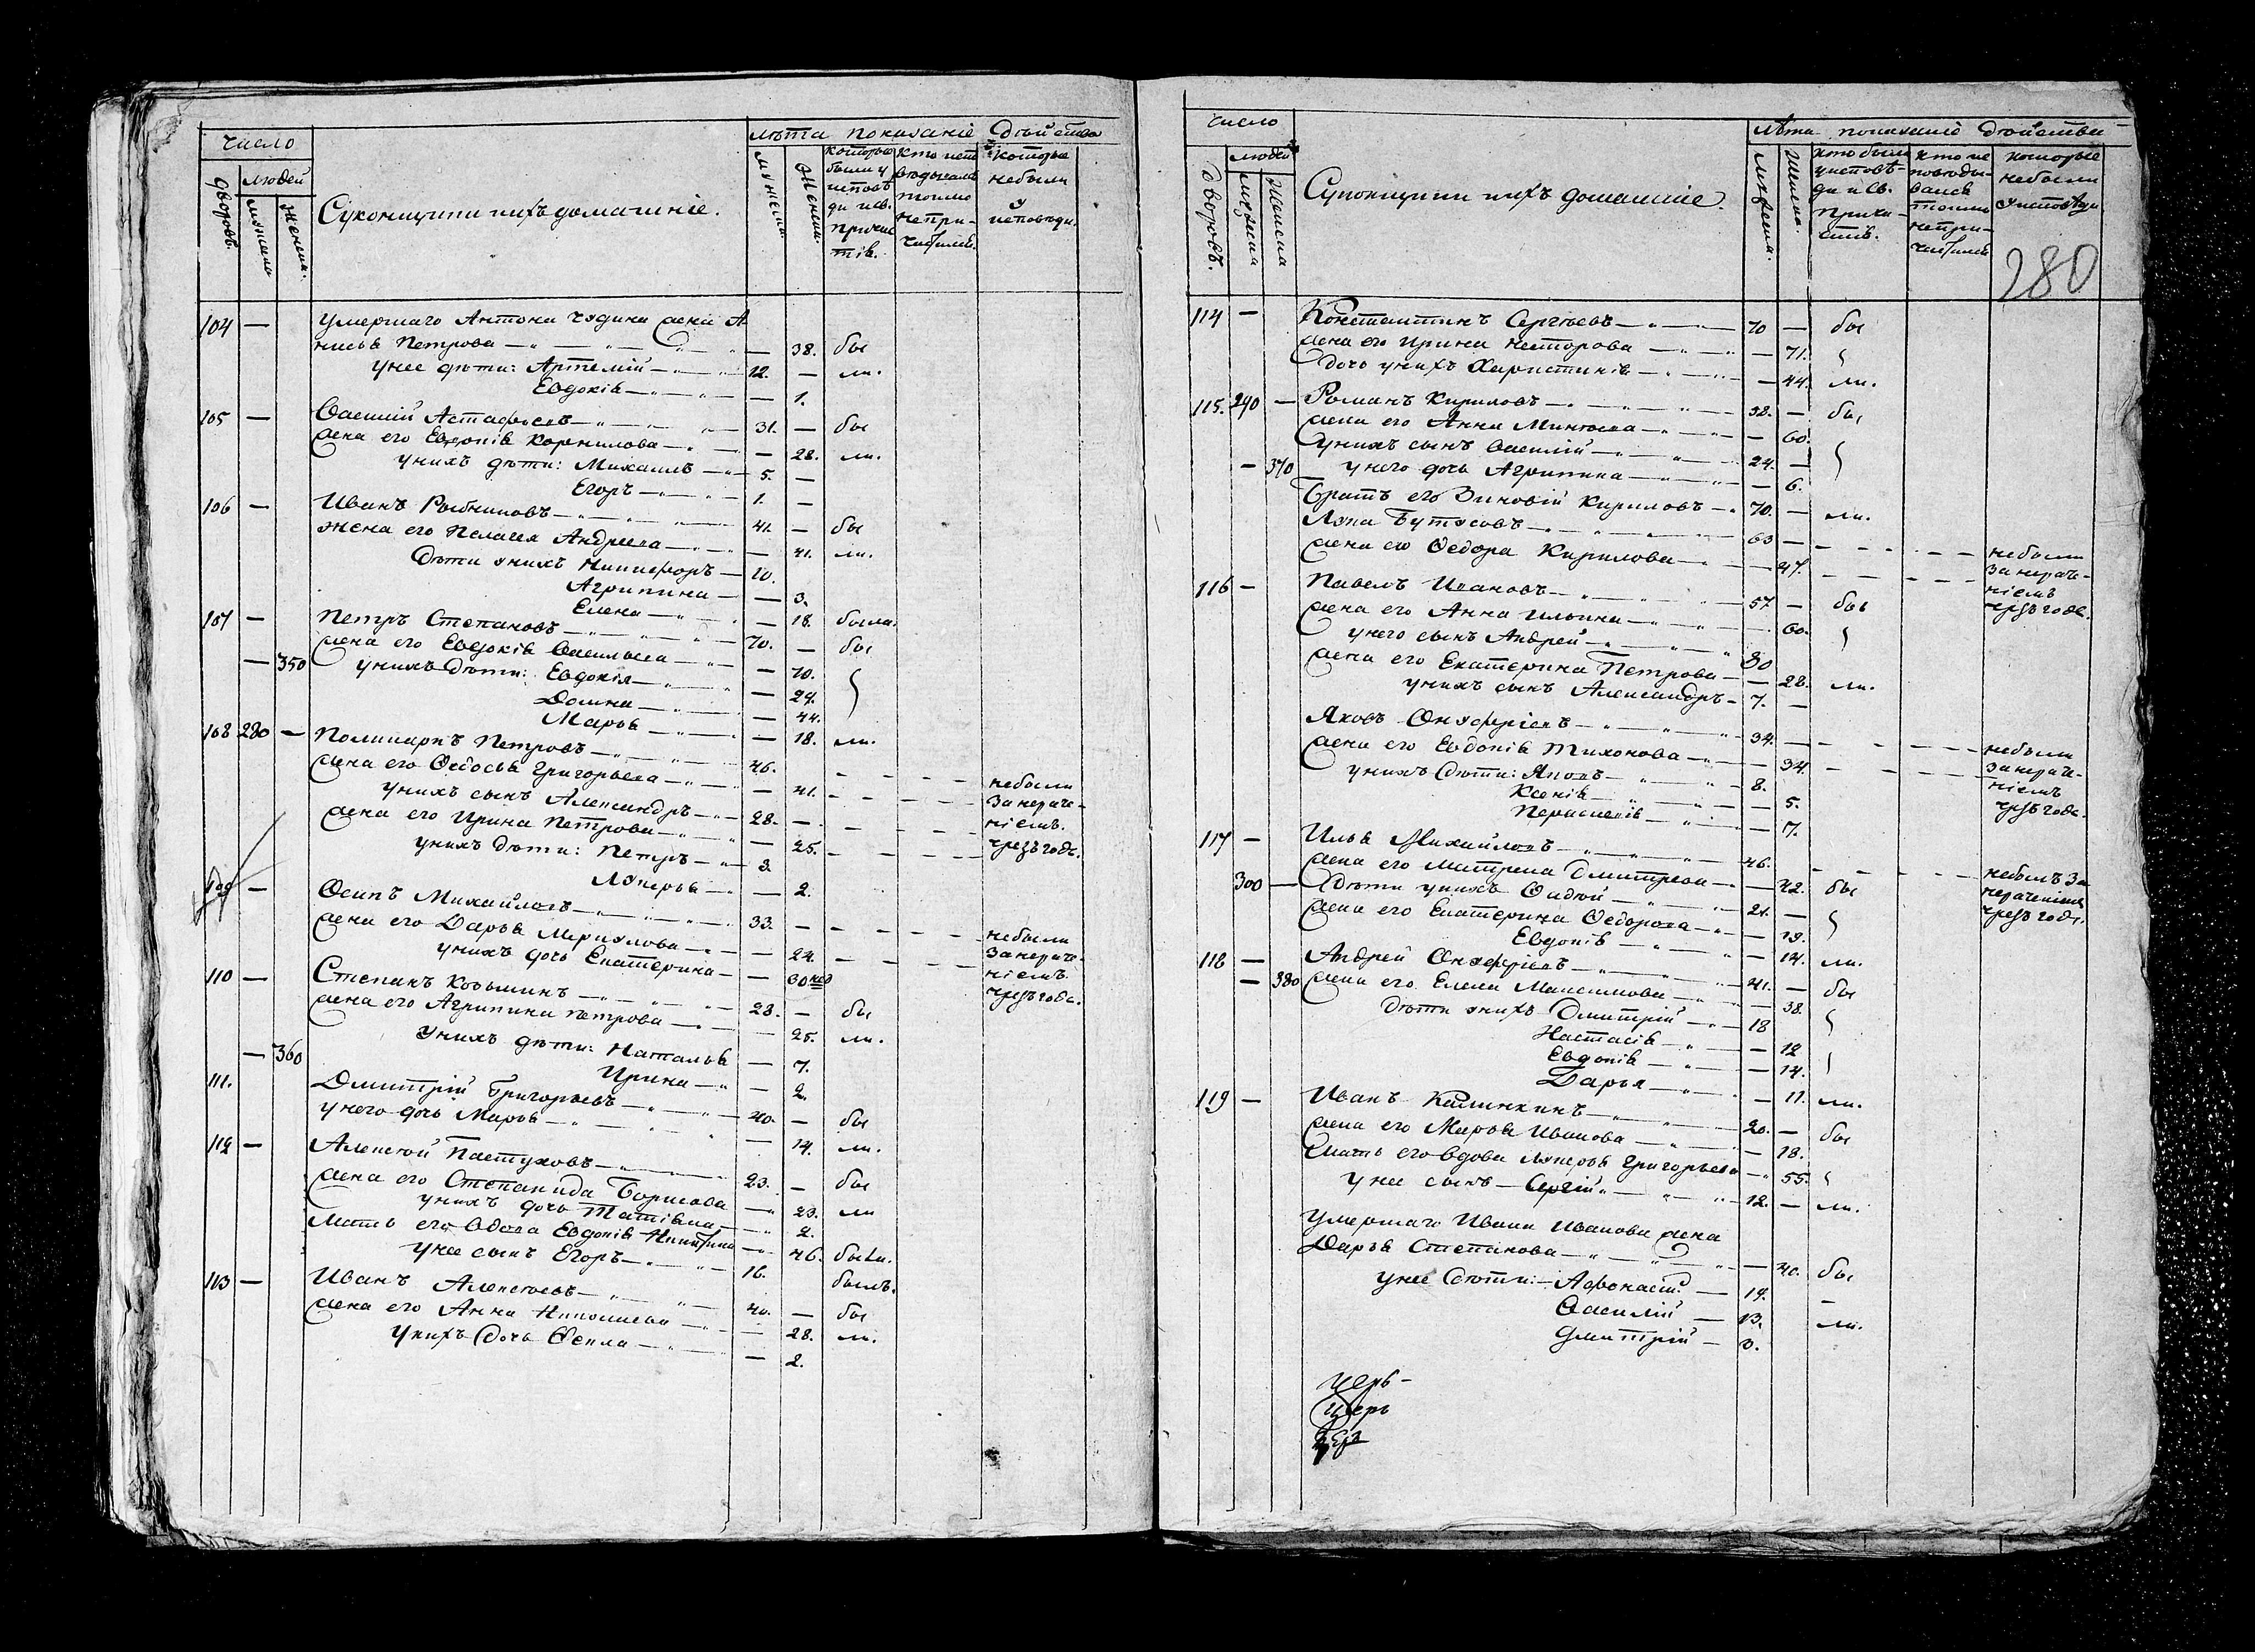 число
лѣта показаніе дѣйства
дворовъ.
людей
мужеска
женска.
Суконщики ихъ домашніе.
мужеска.
женска.
которые были у исповѣди и св. причастія.
кто исповѣдывался токмо не причастился.
которые небыли у исповѣди.
104 — умершаго Антона Чудина жена А
нисья Петрова — 38. бы
у нее дѣти: Артемій — 12. — ли.
Евдокія — 1.
105 — Василій Астафьевъ — 31. — бы
жена его Евдокія Корнилова — 28. ли.
у нихъ дѣти: Михаилъ — 5. —
Егоръ — 1. —
106 — Иванъ Рыбниковъ — 41. — бы
жена его Пелагея Андреева — 41. ли.
Дѣти у нихъ Никифоръ — 10.
Агрипина — 3.
Елена — 18. была.
107 — Петръ Степановъ — 70. — бы
жена его Евдокія Васильева — 70.
— 350 у нихъ дѣти: Евдокія — 24.
Домна — 44.
Марья — 18. ли.
108 280 — Поликарпъ Петровъ — 46.
жена его Ѳедосья Григорьева — 41. небыли
у нихъ сынъ Александръ — 28. — за нераче-
жена его Ирина Петрова — 25. ніемъ.
у нихъ дѣти: Петръ — 3. чрезъ годъ.
Лукерья — 2.
109 — Осипъ Михайловъ — 33. —
жена его Дарья — 24. небыли
у нихъ дочь Екатерина — 30 нед за нераче-
110 — Степанъ Козьминъ — 28. — бы ніемъ
жена его Агрипина Петрова — 25. ли. чрезъ годъ.
у нихъ дѣти: Наталья — 7.
— 360 Ирина — 2.
111. Дмитрій Григорьевъ — 40. — бы
у него дочь Марья — 14. ли.
112 — Алексѣй Пастуховъ — 23. — бы
жена его Степанида Борисова — 23. ли
у нихъ дочь Татіяна — 2.
Мать его вдова Евдокія Никитина — 46. была.
у нее сынъ Егоръ — 16. былъ.
113 — Иванъ Алексѣевъ — 40. — бы
жена его Анна Николаева — 28. ли.
у нихъ дочь Ѳекла — 2.
число
лѣта показаніе дѣйства
дворовъ.
людей
мужеска
женска
Суконщики ихъ домашніе.
мужеска.
женска.
кто были у исповѣди и св. причастія.
кто исповѣдывался токмо не причастился
которые небыли у исповѣди
280
114 — Константинъ Сергѣевъ — 70 — бы
жена его Ирина Несторова — 71.
дочь у нихъ Харистинія — 44. ли.
115. 290 — Романъ Кириловъ — 38. — бы
жена его Анна Минаева — 60.
у нихъ сынъ Василій — 24. —
— 370 у него дочь Агрипина — 6.
Братъ его Зиновій Кириловъ — 70. — ли.
Лука Бутусовъ — 63 — небыли
жена его Ѳедора Кирилова — 47. за нераче-
116 — Павелъ Ивановъ — 57 — бы ніемъ
жена его Анна Ильина — 60. чрезъ годъ.
у него сынъ Андрей — 30
жена его Екатерина Петрова — 28. ли.
у нихъ сынъ Александръ — 7. —
Яковъ Онуфріевъ — 34. — небыли
жена его Евдокія Тихонова — 34. за нераче-
у нихъ дѣти: Яковъ — 8. ніемъ
Ксенія — 5. чрезъ годъ.
— 7.
117 — Илья Михайловъ — 46. небылъ за
жена его Матрена Дмитреева — 42. бы нераченіемъ
300 — Дѣти у нихъ Фадѣй — 21. — чрезъ годъ.
жена его Екатерина Ѳедорова — 19.
Евдокія — 14. ли.
118 — Андрей Онуфріевъ — 41. — бы
— 380 жена его Елена Максимова — 38.
Дѣти у нихъ Дмитрій — 18
Настасія — 12
Евдокія — 14.
Дарья — 11. ли.
119 — Иванъ Калинкинъ — 20. — бы
жена его Марья Иванова — 18.
Мать его вдова Лукерья Григорьева — 55.
у нее сынъ — Сергій — 12. — ли.
умершаго Ивана Иванова жена
Дарья Степанова — 40. бы
у нее дѣти: — Афонасій — 19. —
Василій — 13. ли.
Дмитрій — 3.
церь-
церь